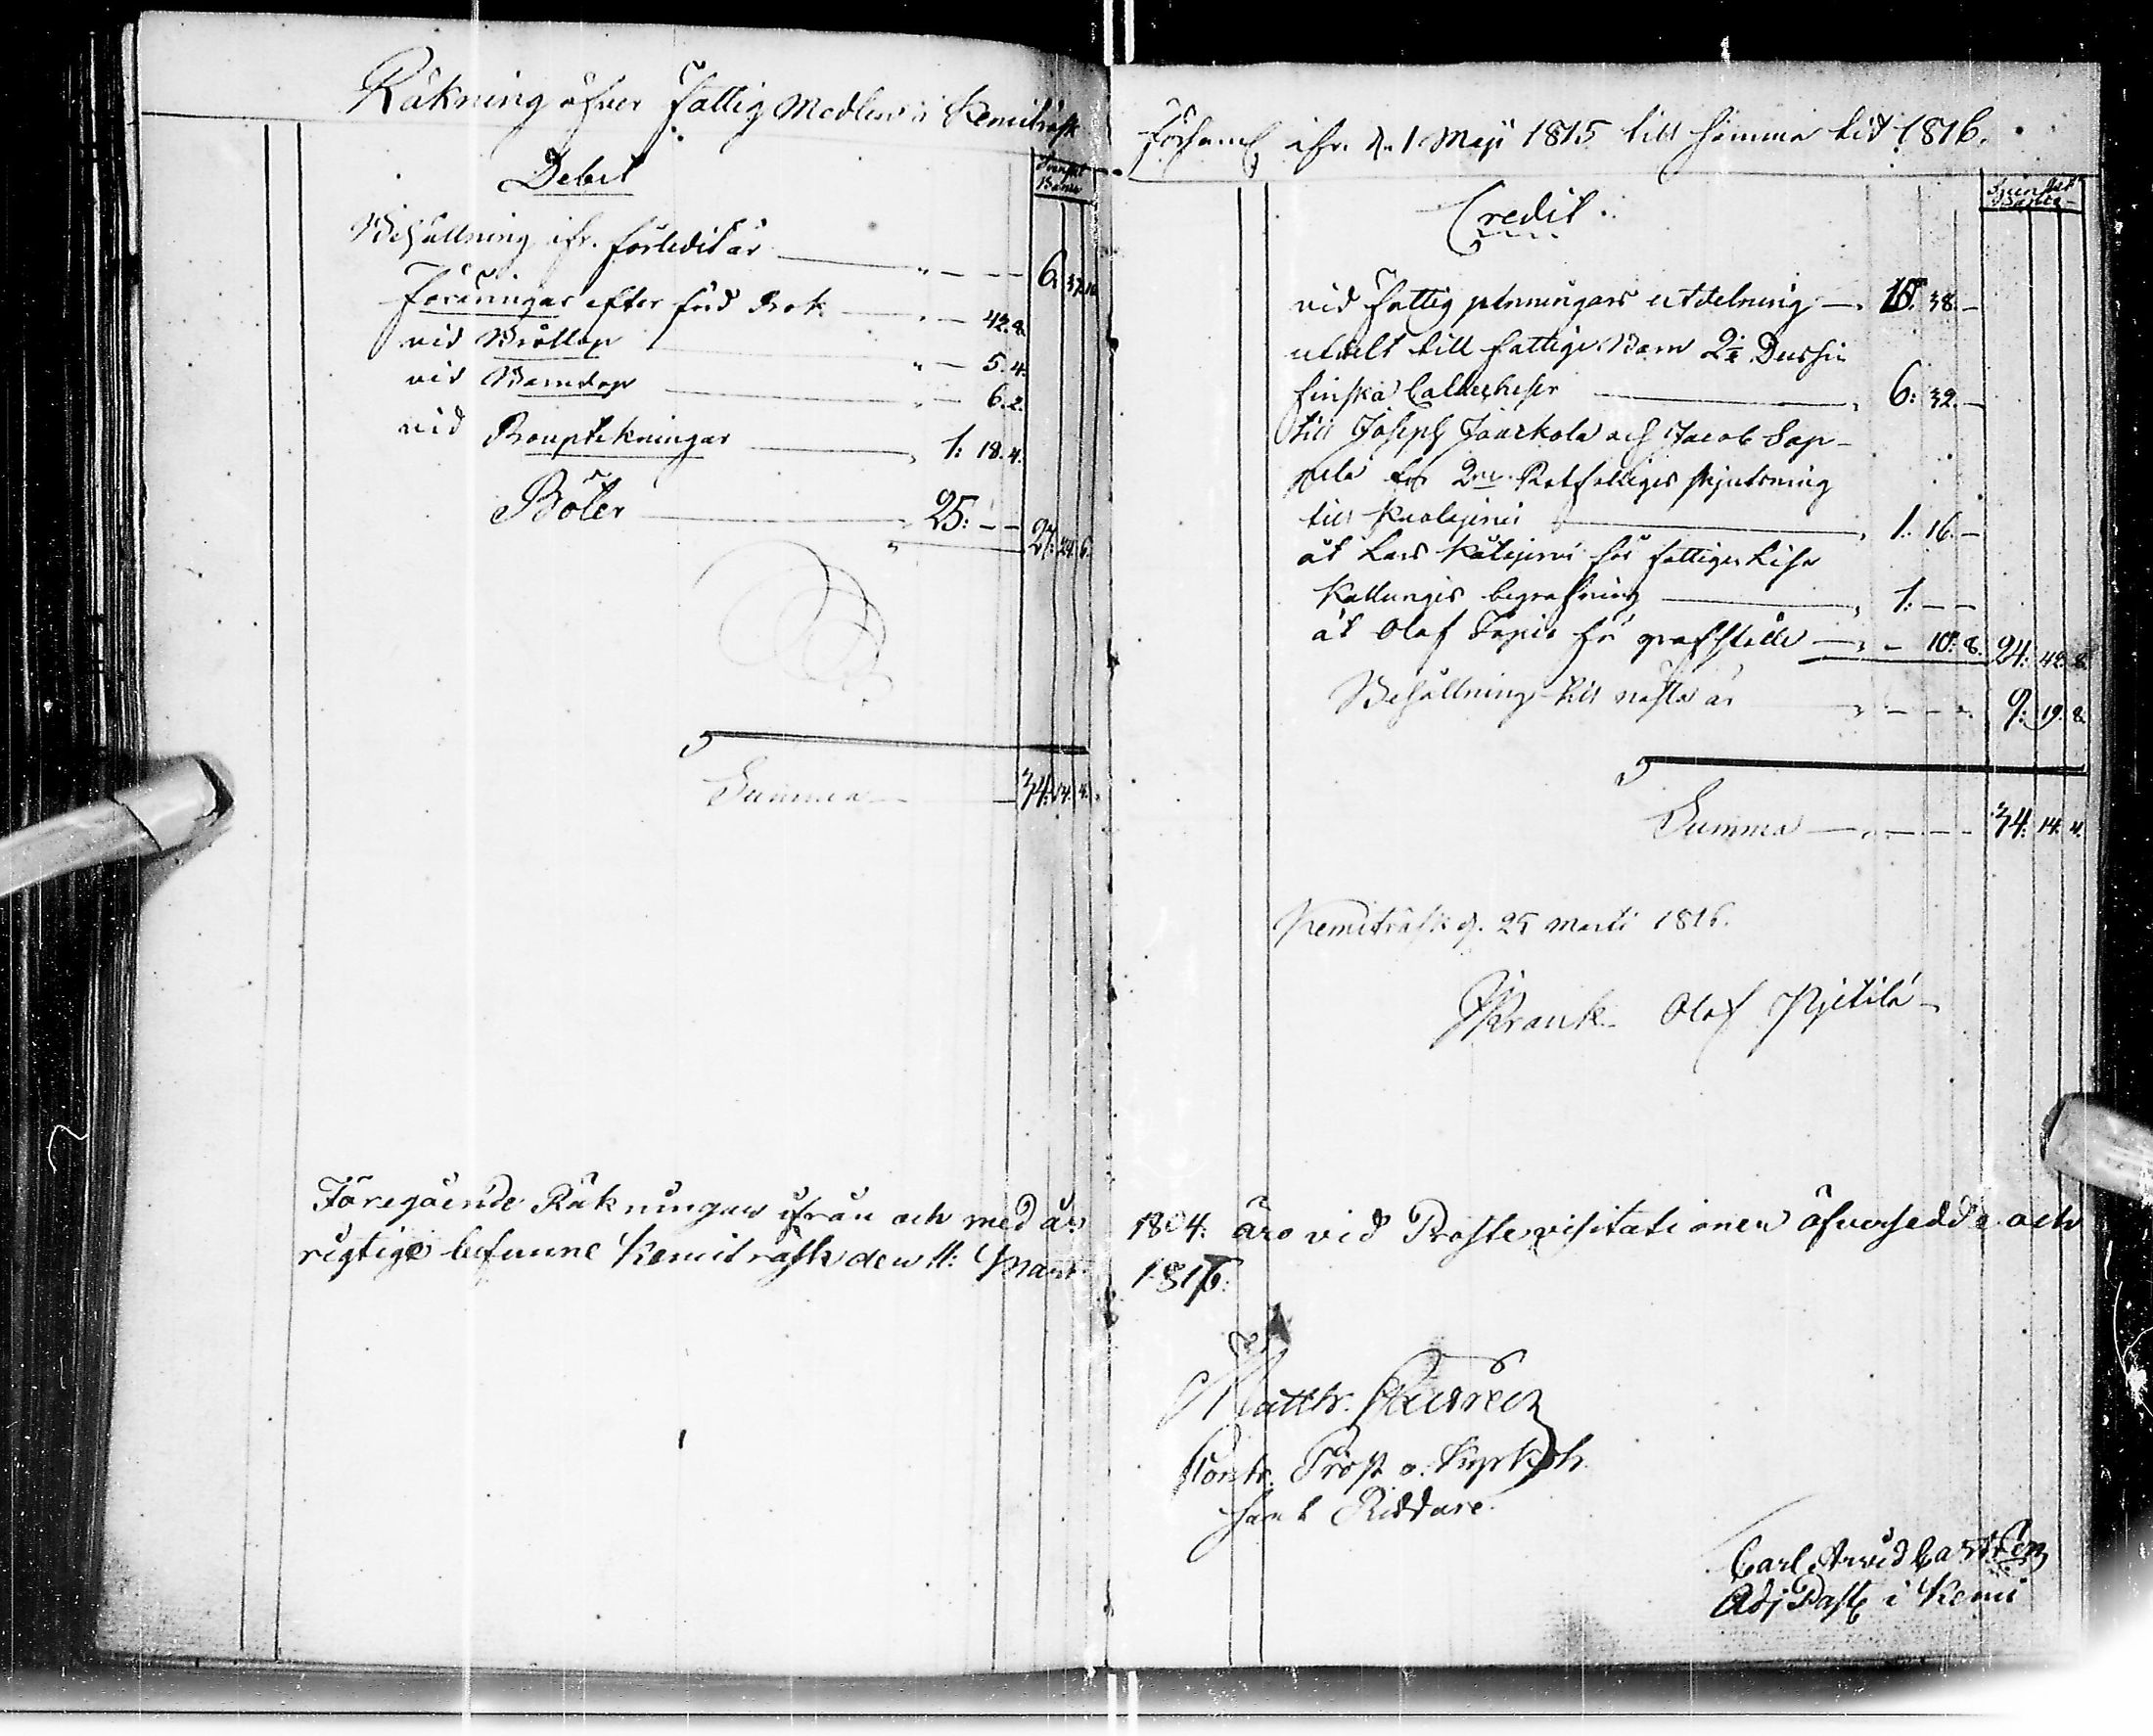 Räkning öfver Fattig Medlen i Kemiträsk
Debet
Svenskt Banco
Behållning ifr. förledit år — 6. 37. 10
Föräringar efter förd Bok — 42. 8.
vid Bröllop — 5. 4.
vid Barndop — 6. 2.
vid Bouptekningar — 1: 18. 4.
Böter — 25: — — 27: 24. 6.
Summa — 34: 14. 4.
Föregående Räkningar ifrån och med år
rigtige befunne Kemiträsk den 11: Mart
Församl ifr. d. 1 Maji 1815 till samma tid 1816.
Credit.
Svenskt Banco
vid fattig penningars utdelning — 15: 38. —
utdelt till fattige Barn 2½ Dussin
finska Catecheser — 6: 32. —
till Joseph Jaarkola och Jacob Sap-
pela för 2ne Rotfattiges skjutsning
till — 1. 16. —
åt Lars för fattiges Lisa
Kallungis begrafning — 1: — —
åt Olof Tapio för grafställe — 10: 8. 24: 42. 8.
Behållning till nästa år — 9: 19. 8.
Summa — 34: 14. 4.
Kemiträsk d. 25 Marti 1816.
Krank Olof Pjetilä
1804: äro vid Prostevisitationen öfversedde och
1816:
Matth.
Contr. Prost o. Kyrkoh.
samt Riddare.
Carl Arvid Castrén
Adj Past i Kemi